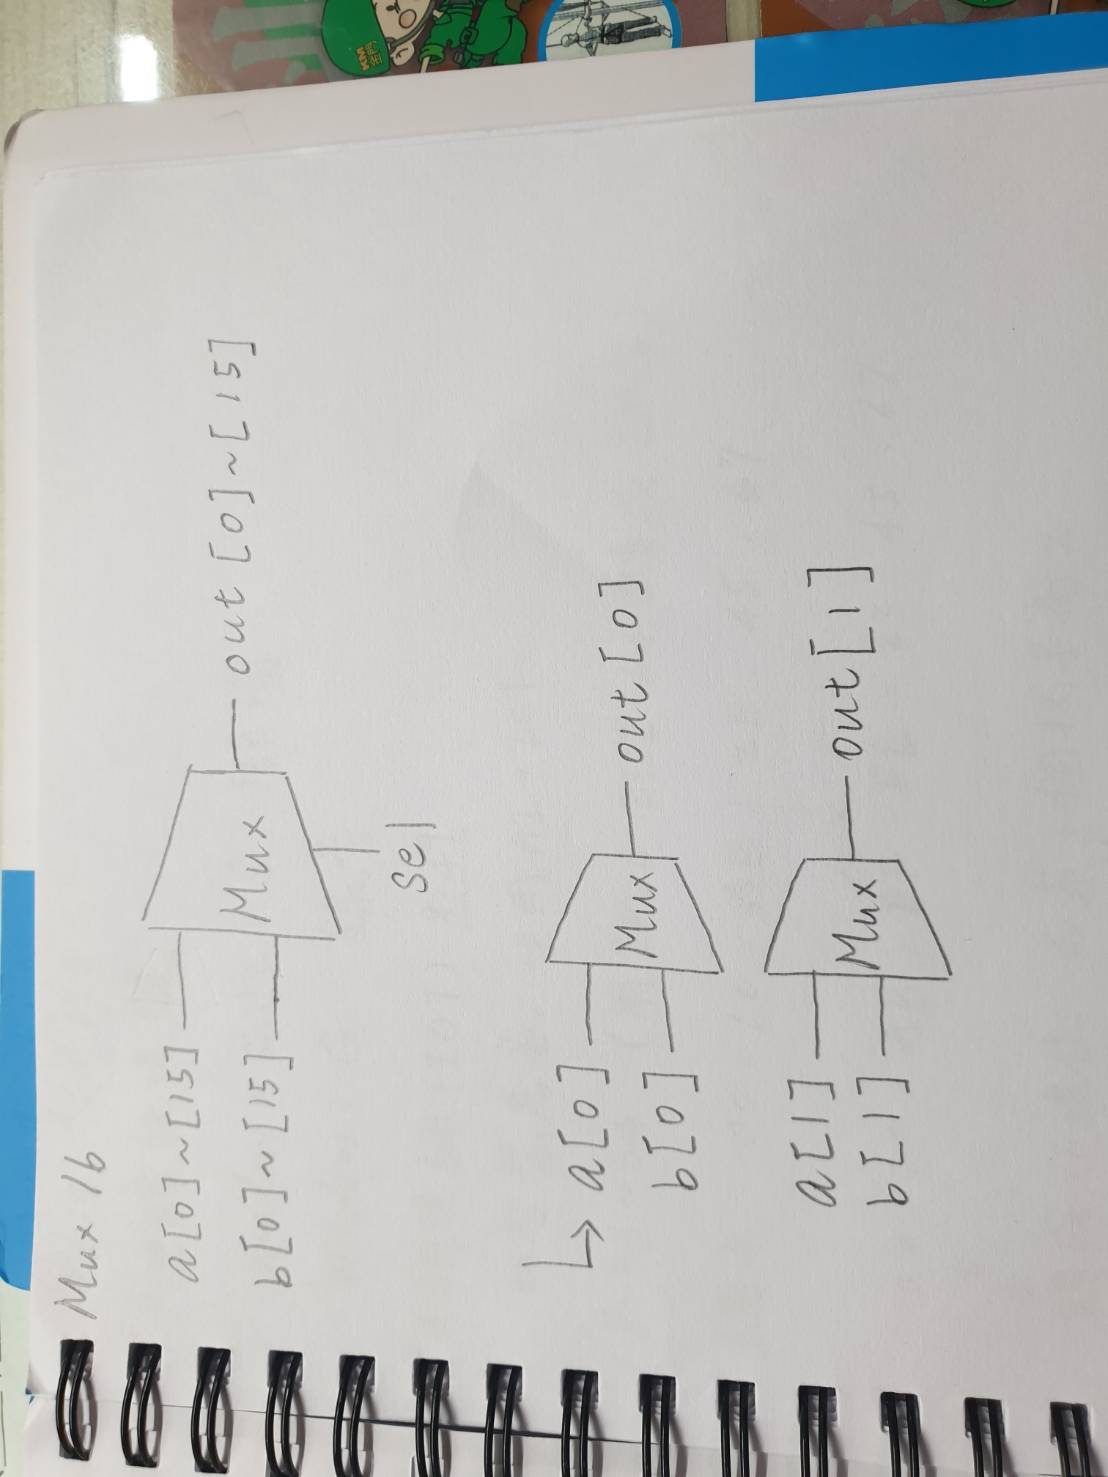 Mux 16
a[0]~[15]
b[0]~[15]
Mux
out[0]~[15]
sel
a[0]
b[0]
Mux
out[0]
a[1]
b[1]
Mux
out[1]
KM
金門